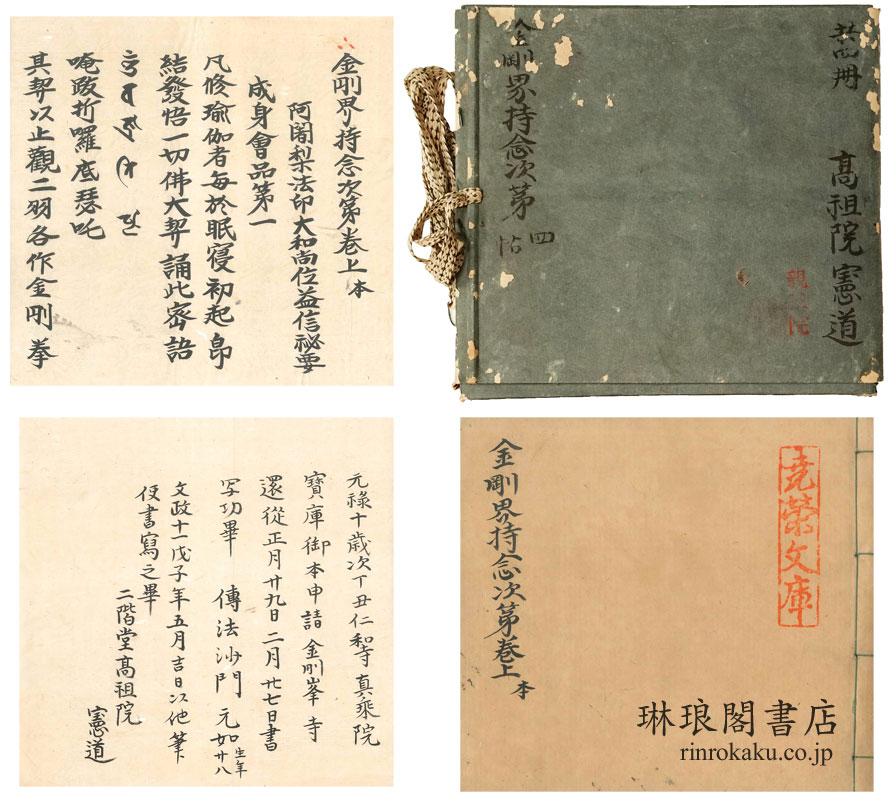 金剛界持念次第卷上 本
阿闍梨法印大和尚位益信祕要
成身會品第一
凡修瑜伽者每於眠寝初起卽
結發悟一切佛大契誦此密語
唵跋折囉底瑟吒
其契以止觀二羽各作金剛拳
共四冊
金剛界持念次第 四帖
高祖院憲道
元禄十歳次丁丑仁和寺真乘院
寶庫御本申請金剛峯寺
還從正月廿九日二月廿七日書
写功畢 傳法沙門 元如 生年廿八
文政十一戊子年五月吉日以他筆
伇書寫之畢
二階堂髙祖院
憲道
金剛界持念次第卷上 本
尭榮文庫
琳琅閣書店
rinrokaku.co.jp